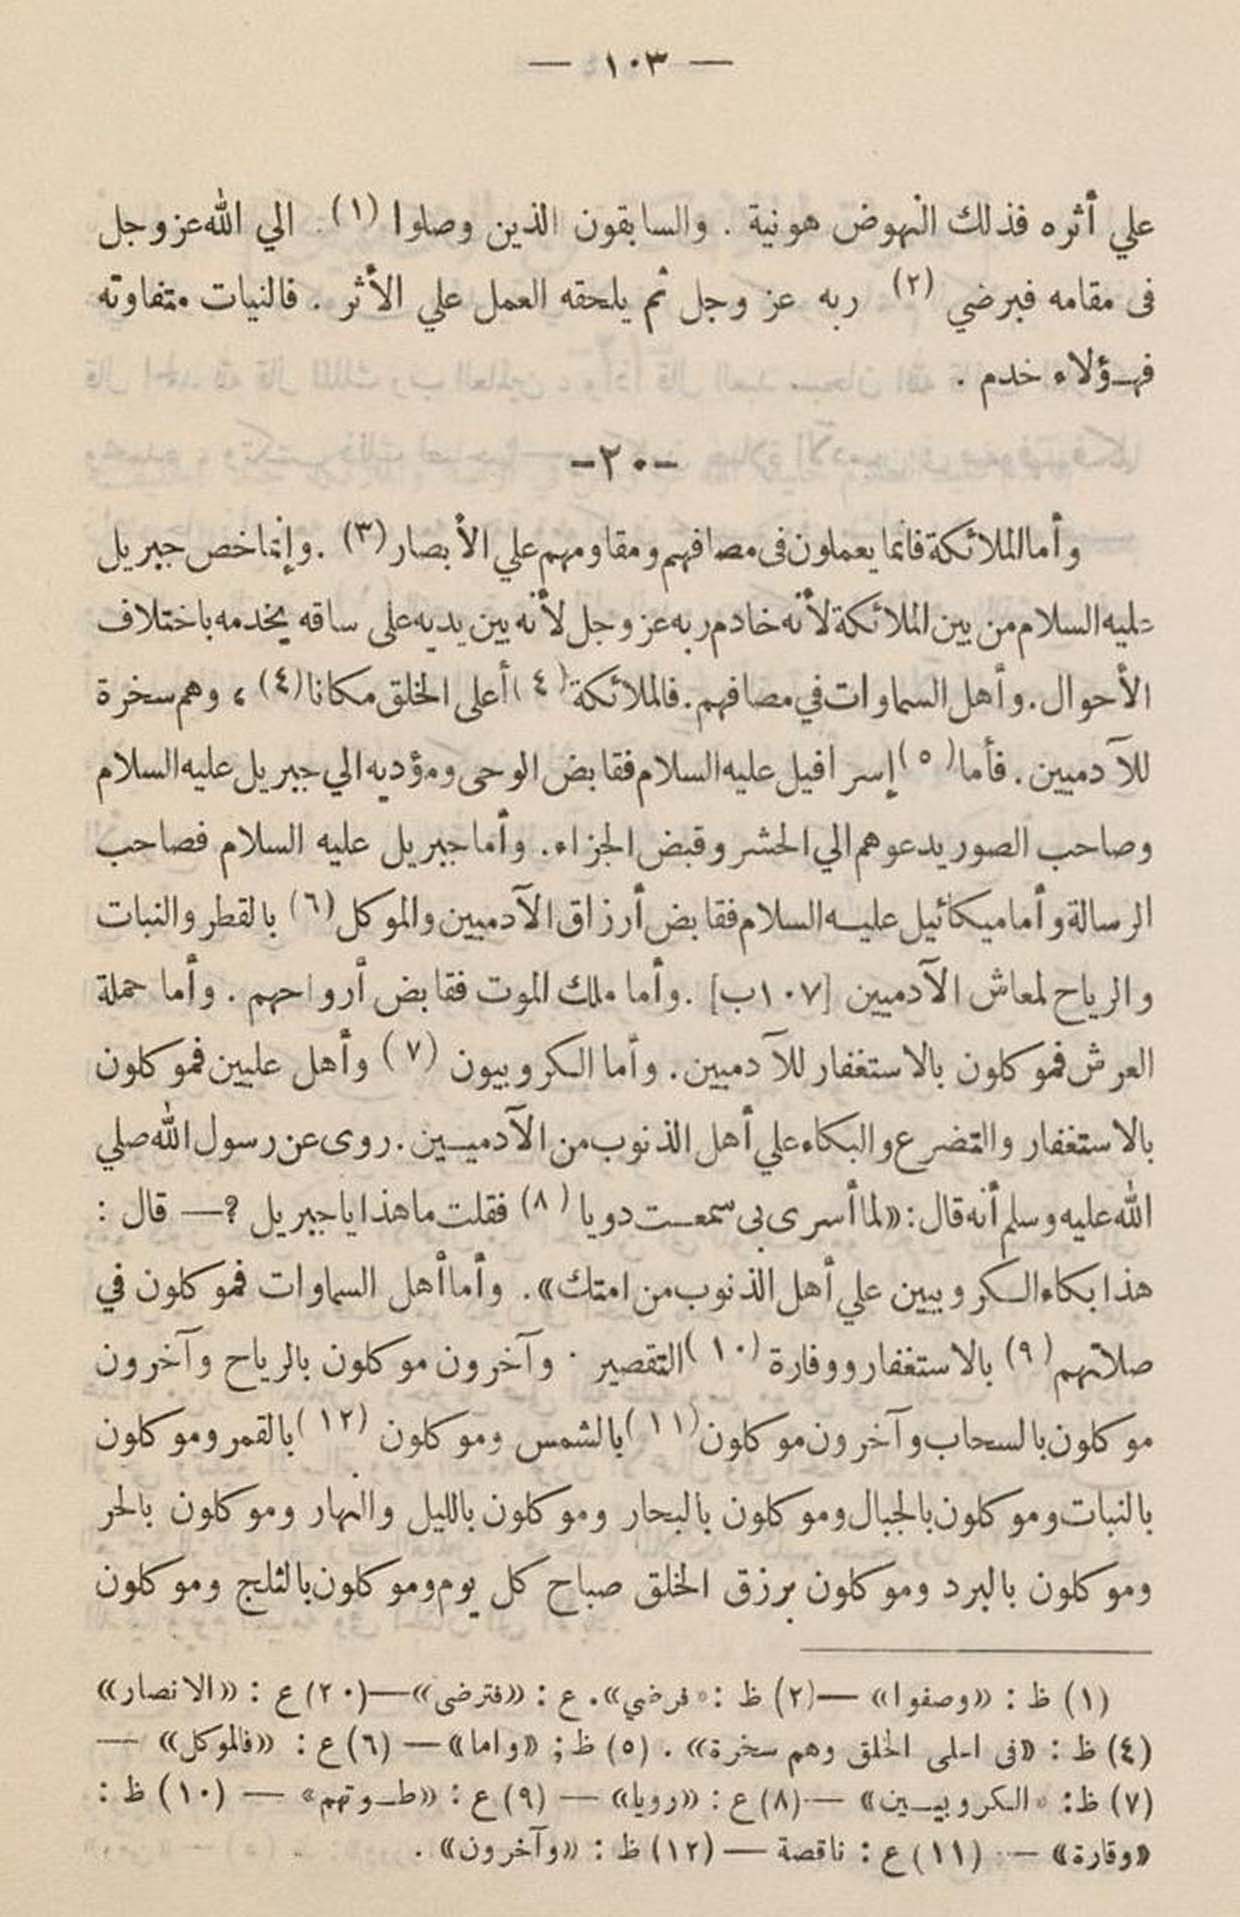 — ١٠٣ —
علي أثره فذلك النهوض هونية . والسابقون الذين وصلوا (١) الي الله عز وجل
فى مقامه فبرضي (٢) ربه عز وجل ثم يلحقه العمل علي الأثر . فالنيات متفاوته
فهـؤلاء خدم .
-٢٠-
وأما الملائكة فانما يعملون فى مصافهم ومقاومهم علي الأبصار (٣) . وإنما خص جبريل
عليه السلام من بين الملائكة لأنه خادم ربه عز وجل لأنه بين يديه على ساقه يخدمه باختلاف
الأحوال . وأهل السماوات في مصافهم . فالملائكة (٤) أعلى الخلق مكانا (٤) ، وهم سخرة
للآدميين . فأما (٥) إسرافيل عليه السلام فقابض الوحى ومؤديه الي جبريل عليه السلام
وصاحب الصور يدعوهم الي الحشر وقبض الجزاء . وأما جبريل عليه السلام فصاحب
الرسالة وأما ميكائيل عليـه السلام فقابض أرزاق الآدميين والموكل (٦) بالقطر والنبات
والرياح لمعاش الآدميين [١٠٧ب] . وأما ملك الموت فقابض أرواحهم . وأما حملة
العرش فموكلون بالاستغفار للآدميين . وأما الكروبيون (٧) وأهل عليين فموكلون
بالاستغفار والتضرع والبكاء علي أهل الذنوب من الآدميـين . روى عن رسول الله صلي
الله عليه وسلم أنه قال : «لما أسرى بى سمعـت دويا (٨) فقلت ما هذا يا جبريل ؟ — قال :
هذا بكاء الكروبيين علي أهل الذنوب من امتك» . وأما أهل السماوات فموكلون في
صلاتهم (٩) بالاستغفار ووفارة (١٠) التقصير . وآخرون موكلون بالرياح وآخرون
موكلون بالسحاب وآخرون موكلون (١١) بالشمس وموكلون (١٢) بالقمر وموكلون
بالنبات وموكلون بالجبال وموكلون بالبحار وموكلون بالليل والنهار وموكلون بالحر
وموكلون بالبرد وموكلون برزق الخلق صباح كل يوم وموكلون بالثلج وموكلون
(١) ظ : «وصفوا» —(٢) ظ : «فرضي» . ع : «فترضى»—(٢٠) ع : «الانصار»
(٤) ظ : «فى اعلى الخلق وهم سخرة» . (٥) ظ ; «واما» — (٦) ع : «فالموكل» —
(٧) ظ : «الكروبيـين» —(٨) ع : «رويا» — (٩) ع : «طـوتهم» — (١٠) ظ :
«وقارة» — (١١) ع : ناقصة — (١٢) ظ : «وآخرون» .